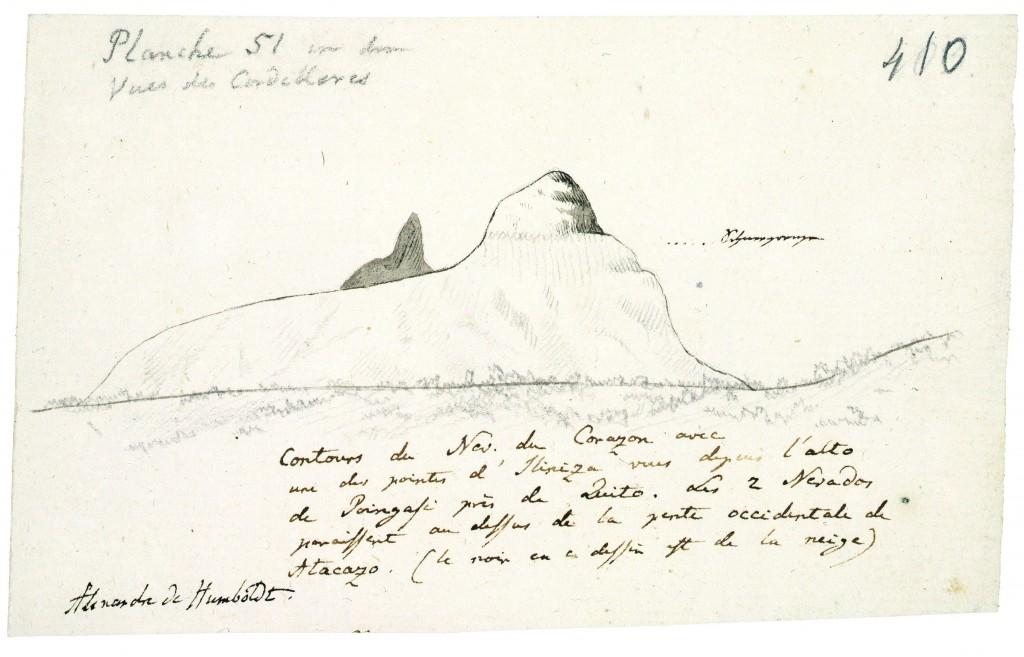 Planche 51 in den
Vues des Cordilleres
410
Contours du Nev. du Corazon avec
une des pointes d'Iliniza vues depuis l'alto
de Poingasi près de Quito. Les 2 Nevados
paraissent au dessus de la pente occidentale de
Atacazo. (le noir en ce dessin est de la neige)
Alexandre de Humboldt.